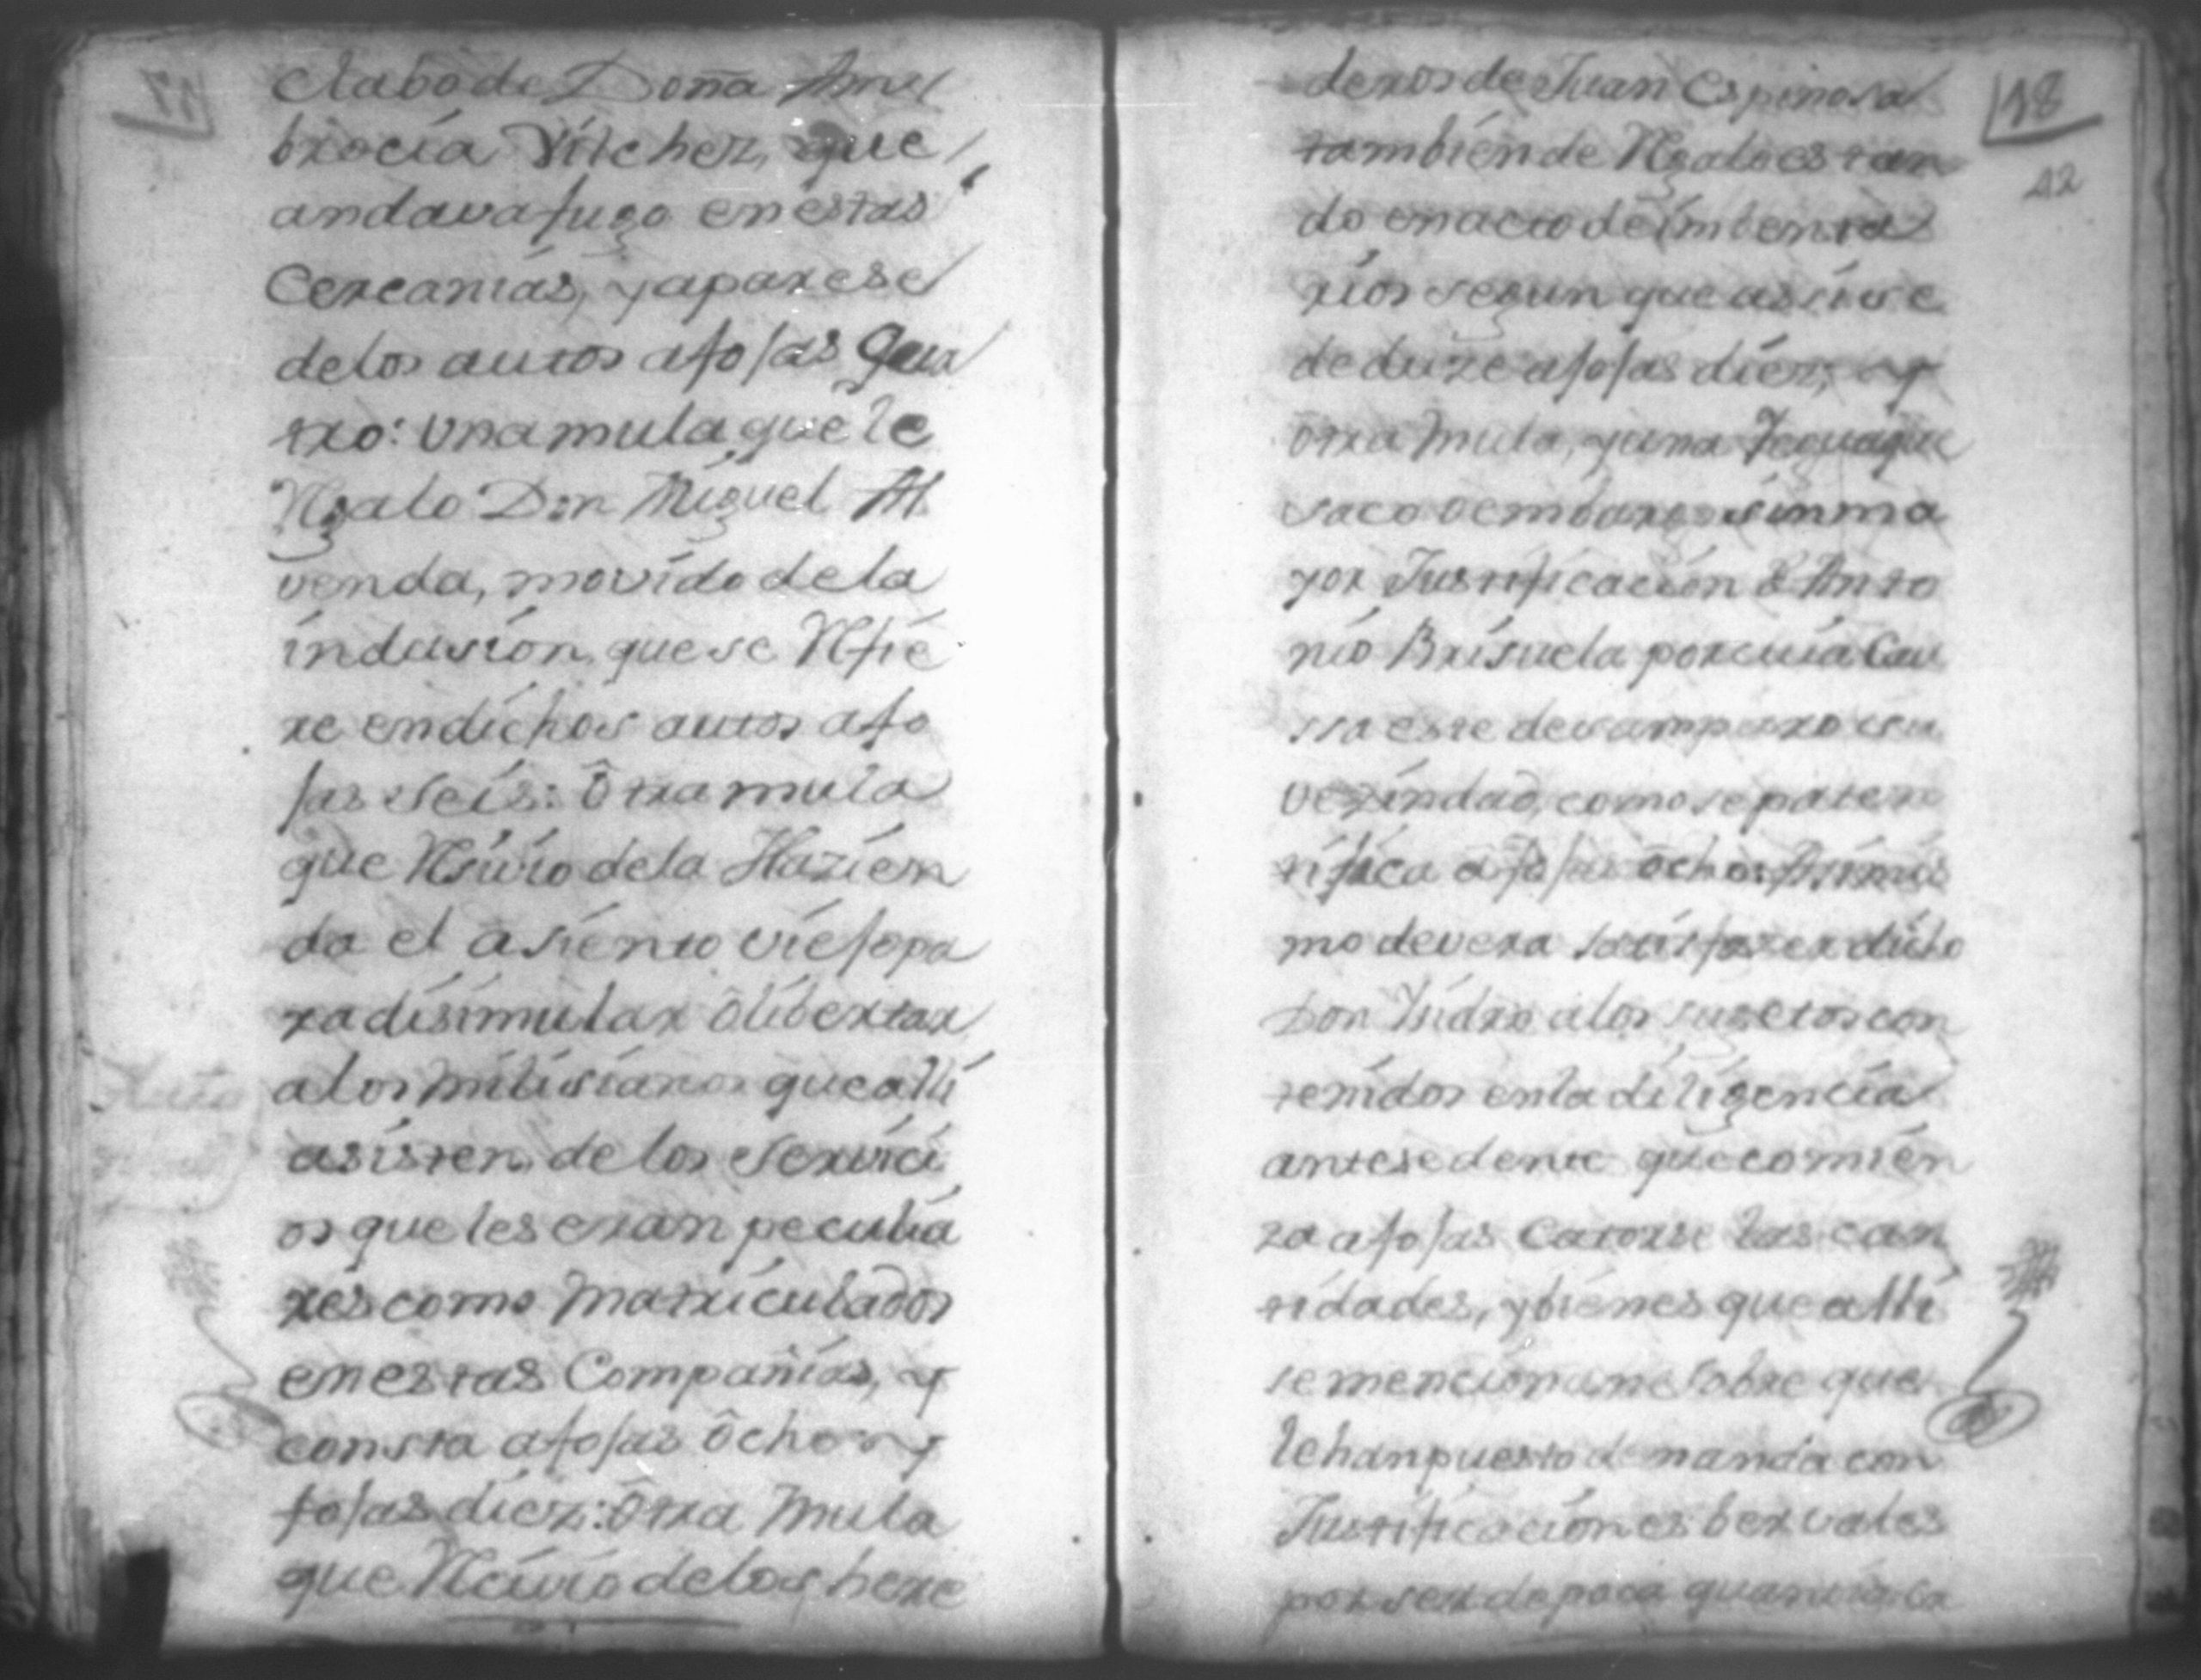 clabo de Doña Am
brocia Vilchez, que
andava fugo en estas
Cercanias, y aparese
de los autos afojas qua
tro: Una mula que le
Rgalo Don Miguel Al
venda, movido de la
inclusion, que se Rfie
re en dichos autos afo
jas seis: Ôtra mula
que Rsivio de la Hazien
da el asiento viejo pa
ra disimular ô libertar
a los milisianos que alli
asisten, de los servici
os que les eran peculia
res como Matriculados
en estas Compañias, y
consta afojas ôcho y
fojas diez: Ôtra Mula
que Rcivio de los here
18
12
deros de Juan Espinosa
también de Rgalo estan
do en acto de imbenta
rios segun que assi se
deduze afojas diez, y
otra Mula, y una Yegua que
saco oembargo sin ma
yor Justificacion â Anto
nio Brisuela por cuia Cau
ssa este desamparo su
vezindad, como se paten
tifica a fojas ôcho: Asimis
mo devera satisfazer dicho
Don Isidro a los sugetos con
tenidos en la diligencia
antesedente que comien
za afojas Catorse las can
tidades, y bienes que alli
se mencionan sobre que
le han puesto demanda con
Justificaciones bervales
por ser de poca quantia la